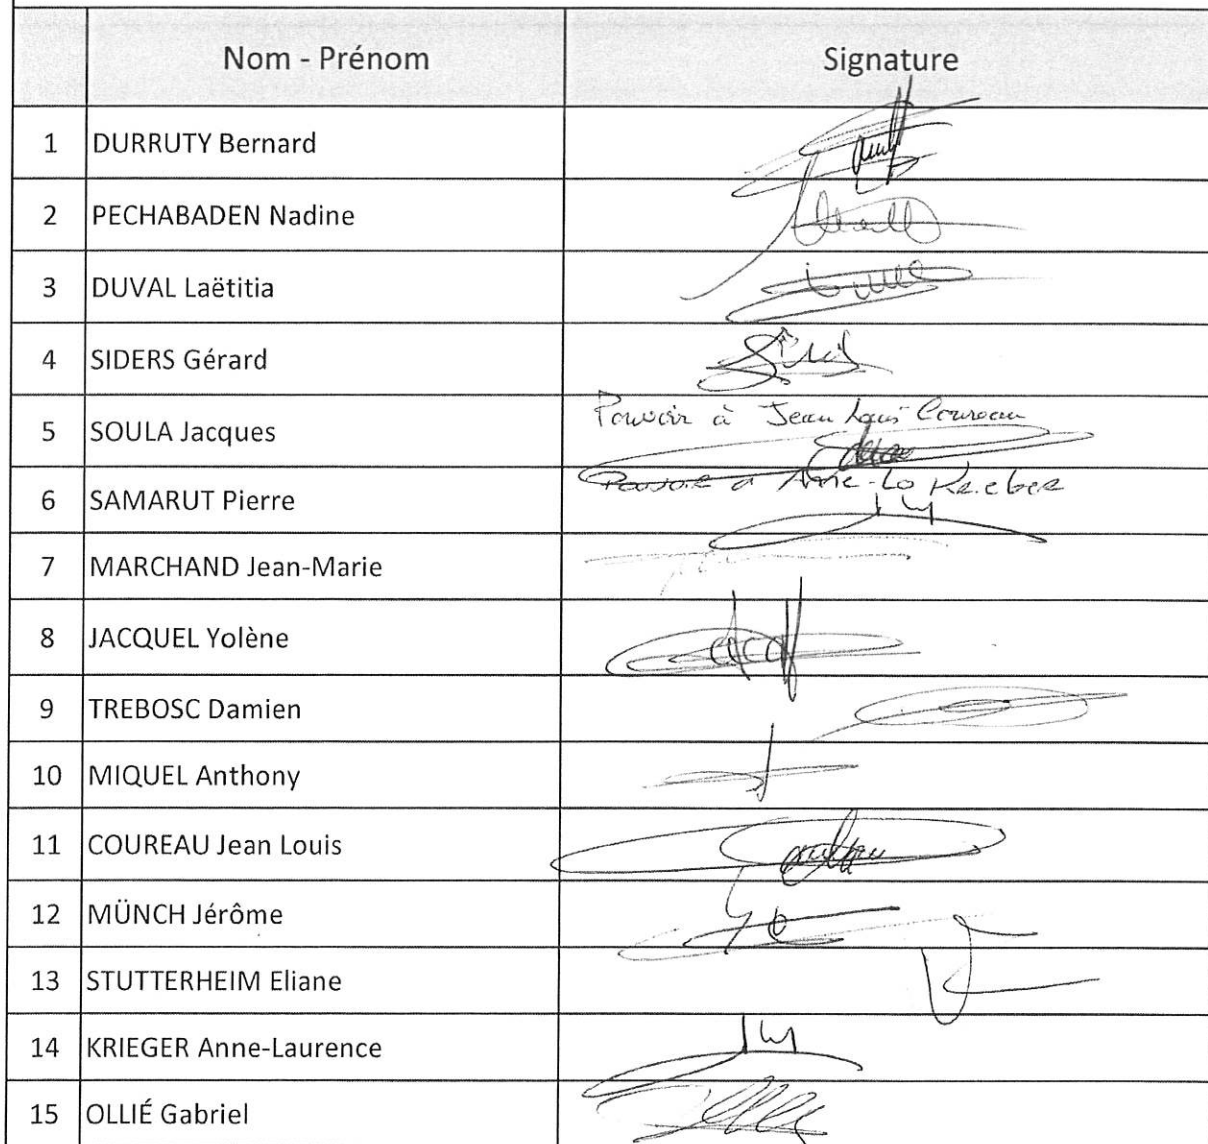 Nom - Prénom Signature
1 DURRUTY Bernard
2 PECHABADEN Nadine
3 DUVAL Laëtitia
4 SIDERS Gérard
Pouvoir à Jean Louis Coureau
5 SOULA Jacques
Pouvoir à
6 SAMARUT Pierre
7 MARCHAND Jean-Marie
8 JACQUEL Yolène
9 TREBOSC Damien
10 MIQUEL Anthony
11 COUREAU Jean Louis
12 MÜNCH Jérôme
13 STUTTERHEIM Eliane
14 KRIEGER Anne-Laurence
15 OLLIÉ Gabriel